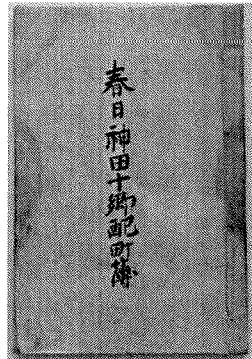 春日神田十郷配町簿